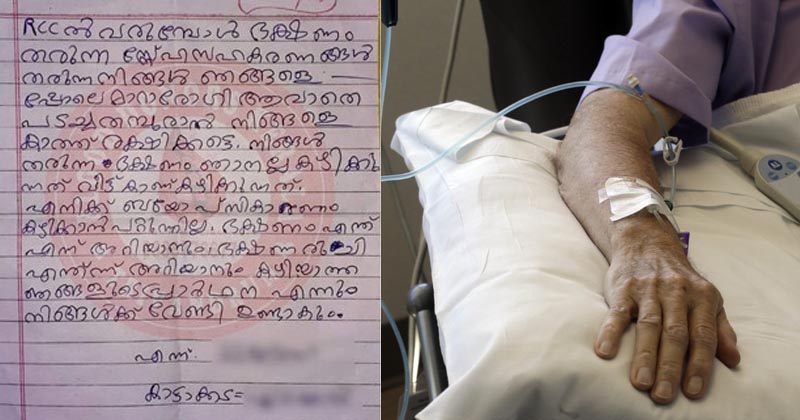 RCC ൽ വരുമ്പോൾ ഭക്ഷണം
തരുന്ന സ്നേഹസഹകരണങ്ങൾ
തരുന്ന നിങ്ങൾ ഞങ്ങളെ
പോലെ മാറാരോഗി ആവാതെ
പടച്ചതമ്പുരാൻ നിങ്ങളെ
കാത്ത് രക്ഷിക്കട്ടെ. നിങ്ങൾ
തരുന്ന ഭക്ഷണം ഞാനല്ല കഴിക്കു
ന്നത് വീട്ട്കാണ് കഴിക്കുന്നത്.
എനിക്ക് ബയോപ്സികാരണം
കഴിക്കാൻ പറ്റുന്നില്ല. ഭക്ഷണം എന്ത്
എന്ന് അറിയാനും ഭക്ഷണ രുചി
എന്ത്ന്ന് അറിയാനും കഴിയാത്ത
ഞങ്ങളുടെ പ്രാർഥന എന്നും
നിങ്ങൾക്ക് വേണ്ടി ഉണ്ടാകും.
എന്ന്.
കാട്ടാക്കട=